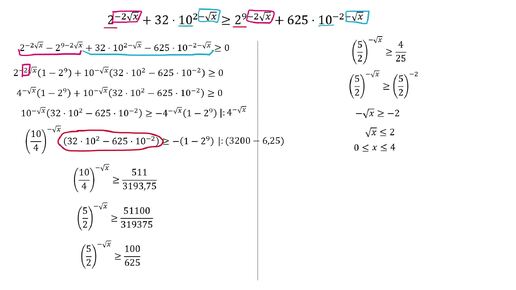 2^{−2√x} + 32 · 10^{2−√x} ≥ 2^{9−2√x} + 625 · 10^{−2−√x}
2^{−2√x} − 2^{9−2√x} + 32 · 10^{2−√x} − 625 · 10^{−2−√x} ≥ 0
2^{−2√x}(1 − 2^9) + 10^{−√x}(32 · 10^2 − 625 · 10^{−2}) ≥ 0
4^{−√x}(1 − 2^9) + 10^{−√x}(32 · 10^2 − 625 · 10^{−2}) ≥ 0
10^{−√x}(32 · 10^2 − 625 · 10^{−2}) ≥ −4^{−√x}(1 − 2^9) |: 4^{−√x}
(10/4)^{−√x} (32 · 10^2 − 625 · 10^{−2}) ≥ −(1 − 2^9) |: (3200 − 6,25)
(10/4)^{−√x} ≥ 511/3193,75
(5/2)^{−√x} ≥ 51100/319375
(5/2)^{−√x} ≥ 100/625
(5/2)^{−√x} ≥ 4/25
(5/2)^{−√x} ≥ (5/2)^{−2}
−√x ≥ −2
√x ≤ 2
0 ≤ x ≤ 4